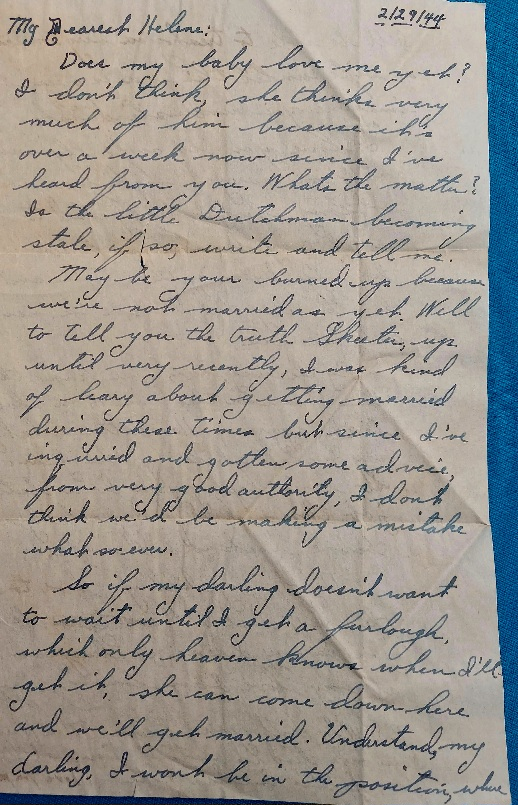 2/29/44
My Dearest Helene:
Does my baby love me yet?
I don't think, she thinks very
much of him because it's
over a week now since I've
heard from you. Whats the matter?
Is the little Dutchman becoming
stale, if so, write and tell me.
May be your burned up because
we're not married as yet. Well
to tell you the truth Skeeter, up
until very recently, I was kind
of leary about getting married
during these times but since I've
inquired and gotten some advice,
from very good authority, I don't
think we'd be making a mistake
what so ever.
So if my darling doesn't want
to wait until I get a furlough,
which only heaven knows when I'll
get it, she can come down here
and we'll get married. Understand, my
darling, I won't be in the position, where